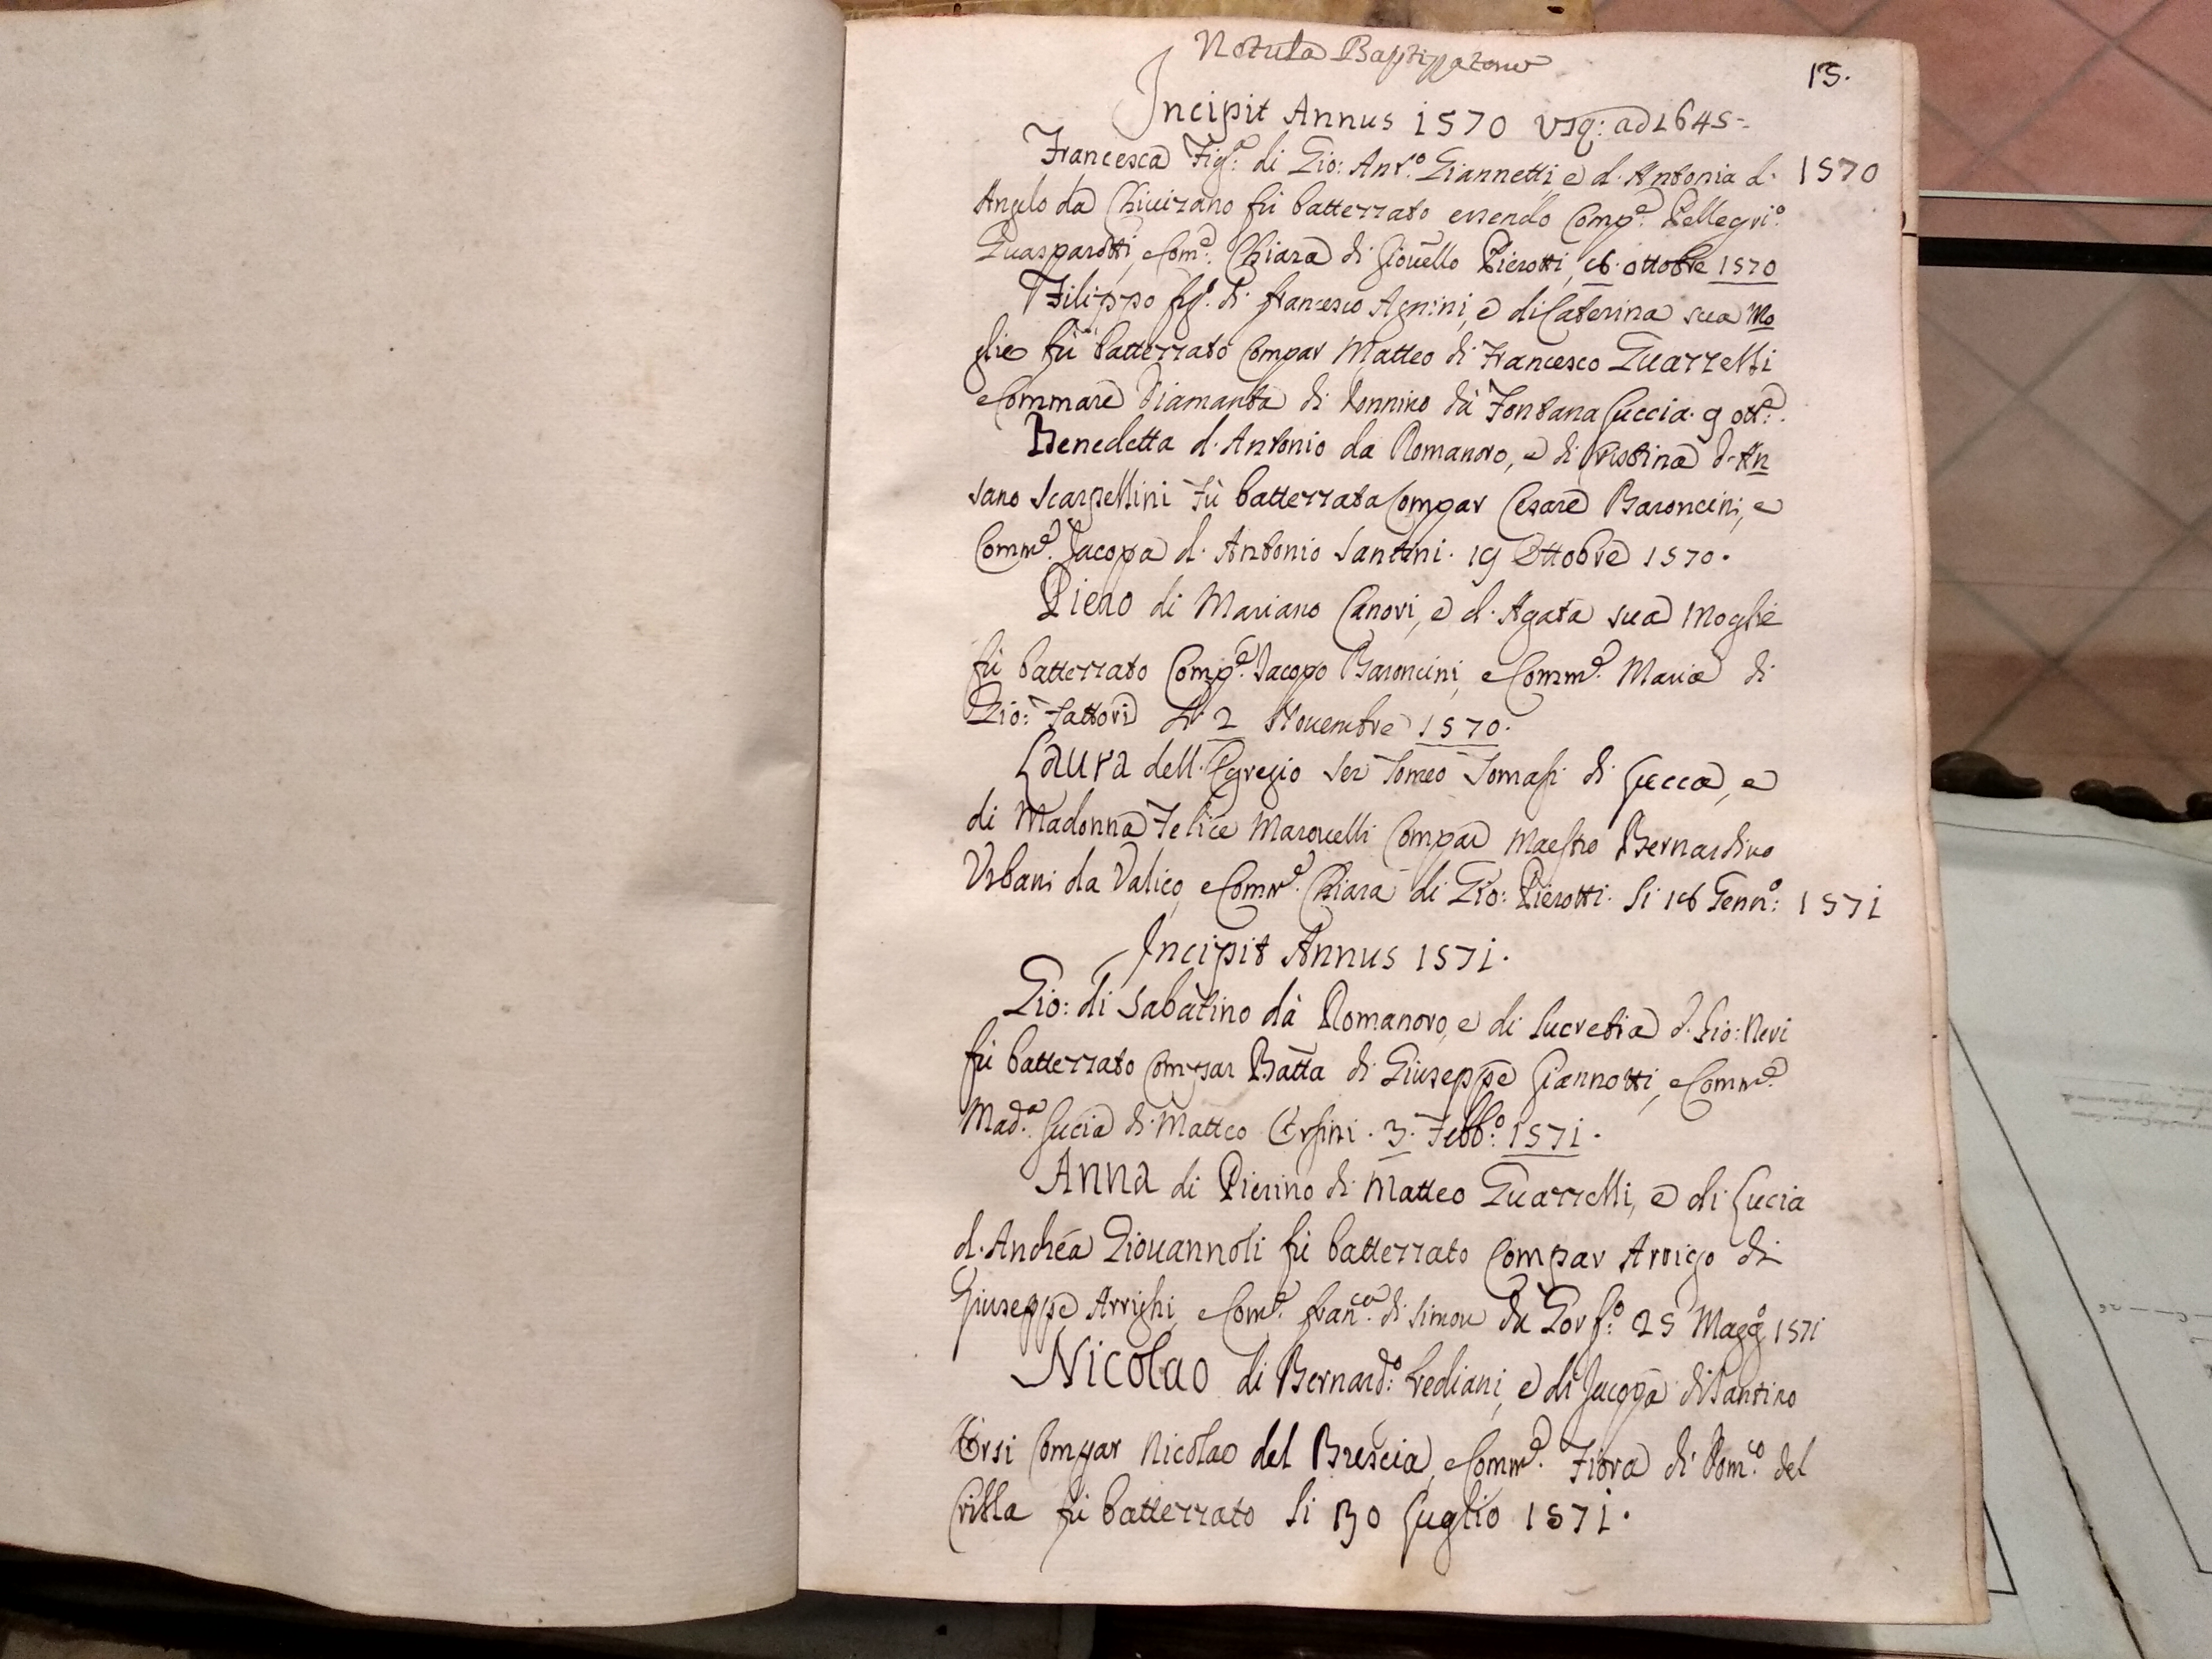 Notula Baptizzatorum
15.
Incipit Annus 1570 usq: ad 1645-
Francesca Fig.ª di Gio: Ant.º Giannetti, e d. Antonia d. 1570
Angelo da Chivizano fù battezzato essendo Comp.e Pellegri.º
Guasparotti, e Com.e Chiara di Giovello Pierotti, 16 ottobre 1570
Filippo fig.º di francesco Agnini, e di Caterina sua Mo
glie fù battezzato Compar Matteo di Francesco Guazzelli
e Commare Diamanta di Donnino dà Fontana Luccia. 9 ott.e.
Benedetta d. Antonio da Romanoro, e di Cristina d. An
sano Scarpellini Fù battezzata Compar Cesare Baroncini, e
Comm.e Jacopa d. Antonio Santini. 19 Ottobre 1570.
Piero di Mariano Canovi, e d. Agata sua Moglie
fù battezzato Comp.e Jacopo Baroncini, e Comm.e Maria di
Gio: Fattori Li 2 Novembre 1570.
Laura dell. Egregio Ser Tomeo Tomasi di Lucca, e
di Madonna Felice Marovelli Compar Maestro Bernardino
Urbani da Valico, e Comm.e Chiara di Gio: Pierotti. Li 16 Genn.º: 1571
Incipit Annus 1571.
Gio: di Sabatino dà Romanoro, e di Lucretia d. Gio: Neri
fù battezzato Compar Batta di Giuseppe Giannotti, e Comm.e
Mad.ª Lucia di Matteo Orsini. 3. Febb.º: 1571.
Anna di Pierino di Matteo Guazzelli, e di Lucia
d. Andrea Giovannoli fù battezzato Compar Arrigo di
Giuseppe Arrighi, e Com.e fran.ca di Simon da Gorf.º: 25 Magg.º 1571
Nicolao di Bernard.º: Frediani, e di Jacopa di Santino
Orsi Compar Nicolao del Brescia, e Comm.e Fiora di Dom.co del
Cribla fù battezzato Li 30 Luglio 1571.